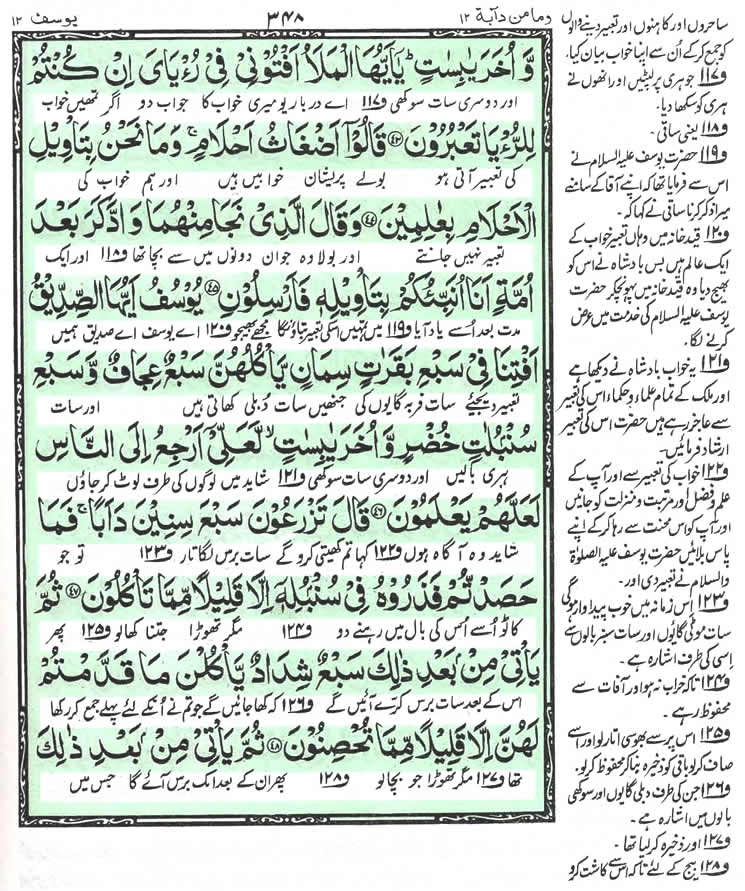 وما من دآبة ۱۲
۳۴۸
یوسف ۱۲
وَّ اُخَرَ یٰبِسٰتٍ ؕ یٰۤاَیُّهَا الْمَلَاُ اَفْتُوْنِیْ فِیْ رُءْیَایَ اِنْ كُنْتُمْ
اور دوسری سات سوکھی و۱۱۷ اے درباریو میری خواب کا جواب دو اگر تمہیں خواب
لِلرُّءْیَا تَعْبُرُوْنَ ﴿۴۳﴾ قَالُوْۤا اَضْغَاثُ اَحْلَامٍ ۚ وَ مَا نَحْنُ بِتَاْوِیْلِ
کی تعبیر آتی ہو بولے پریشان خوابیں ہیں اور ہم خواب کی
الْاَحْلَامِ بِعٰلِمِیْنَ ﴿۴۴﴾ وَ قَالَ الَّذِیْ نَجَا مِنْهُمَا وَ ادَّكَرَ بَعْدَ
تعبیر نہیں جانتے اور بولا وہ جوان دونوں میں سے بچا تھا و۱۱۸ اور ایک
اُمَّةٍ اَنَا اُنَبِّئُكُمْ بِتَاْوِیْلِهٖ فَاَرْسِلُوْنِ ﴿۴۵﴾ یُوْسُفُ اَیُّهَا الصِّدِّیْقُ
مدت بعد اسے یاد آیا و۱۱۹ میں تمہیں اسکی تعبیر بتاؤں گا مجھے بھیجو و۱۲۰ اے یوسف اے صدیق ہمیں
اَفْتِنَا فِیْ سَبْعِ بَقَرٰتٍ سِمَانٍ یَّاْكُلُهُنَّ سَبْعٌ عِجَافٌ وَّ سَبْعِ
تعبیر دیجئے سات فربہ گایوں کی جنھیں سات دُبلی کھاتی ہیں اور سات
سُنْۢبُلٰتٍ خُضْرٍ وَّ اُخَرَ یٰبِسٰتٍ ۙ لَّعَلِّیْۤ اَرْجِعُ اِلَی النَّاسِ
ہری بالیں اور دوسری سات سوکھی و۱۲۱ شاید میں لوگوں کی طرف لوٹ کر جاؤں
لَعَلَّهُمْ یَعْلَمُوْنَ ﴿۴۶﴾ قَالَ تَزْرَعُوْنَ سَبْعَ سِنِیْنَ دَاَبًا ۚ فَمَا
شاید وہ آگاہ ہوں و۱۲۲ کہا تم کھیتی کرو گے سات برس لگاتار و۱۲۳ تو جو
حَصَدْتُّمْ فَذَرُوْهُ فِیْ سُنْۢبُلِهٖۤ اِلَّا قَلِیْلًا مِّمَّا تَاْكُلُوْنَ ﴿۴۷﴾ ثُمَّ
کاٹو اُسے اُس کی بال میں رہنے دو و۱۲۴ مگر تھوڑا جتنا کھالو و۱۲۵ پھر
یَاْتِیْ مِنْۢ بَعْدِ ذٰلِكَ سَبْعٌ شِدَادٌ یَّاْكُلْنَ مَا قَدَّمْتُمْ
اس کے بعد سات برس کرّے آئیں گے و۱۲۶ کہ کھا جائیں گے جو تم نے اُنکے لئے پہلے جمع کر رکھا
لَهُنَّ اِلَّا قَلِیْلًا مِّمَّا تُحْصِنُوْنَ ﴿۴۸﴾ ثُمَّ یَاْتِیْ مِنْۢ بَعْدِ ذٰلِكَ
تھا و۱۲۷ مگر تھوڑا جو بچالو و۱۲۸ پھر ان کے بعد ایک برس آئے گا جس میں
ساحروں اور کاہنوں اور تعبیر دینے والوں
کو جمع کر کے اُن سے اپنا خواب بیان کیا.
و۱۱۷ جو ہری پر لپٹیں اور انھوں نے
ہری کو سکھا دیا.
و۱۱۸ یعنی ساقی.
و۱۱۹ حضرت یوسف علیہ السلام نے
اس سے فرمایا تھا کہ اپنے آقا کے سامنے
میرا ذکر کرنا ساقی نے کہا کہ.
و۱۲۰ قید خانہ میں وہاں تعبیر خواب کے
ایک عالم ہیں بس بادشاہ نے اس کو
بھیج دیا وہ قید خانہ میں پہونچکر حضرت
یوسف علیہ السلام کی خدمت میں عرض
کرنے لگا.
و۱۲۱ یہ خواب بادشاہ نے دیکھا ہے
اور ملک کے تمام علماء و حکماء اس کی تعبیر
سے عاجز رہے ہیں حضرت اس کی تعبیر
ارشاد فرمائیں.
و۱۲۲ خواب کی تعبیر سے اور آپ کے
علم و فضل اور مرتبت و منزلت کو جانیں
اور آپ کو اس محنت سے رہا کر کے اپنے
پاس بلائیں حضرت یوسف علیہ الصلوٰۃ
والسلام نے تعبیر دی اور.
و۱۲۳ اِس زمانہ میں خوب پیداوار ہوگی
سات موٹی گایوں اور سات سبز بالوں سے
اِسی کی طرف اشارہ ہے.
و۱۲۴ تاکہ خراب نہ ہو اور آفات سے
محفوظ رہے.
و۱۲۵ اس پر سے بھوسی اتار لو اور اسے
صاف کر لو باقی کو ذخیرہ بنا کر محفوظ کر لو.
و۱۲۶ جن کی طرف دبلی گایوں اور سوکھی
بالوں میں اشارہ ہے.
و۱۲۷ اور ذخیرہ کر لیا تھا.
و۱۲۸ بیج کے لئے تاکہ اس سے کاشت کرو